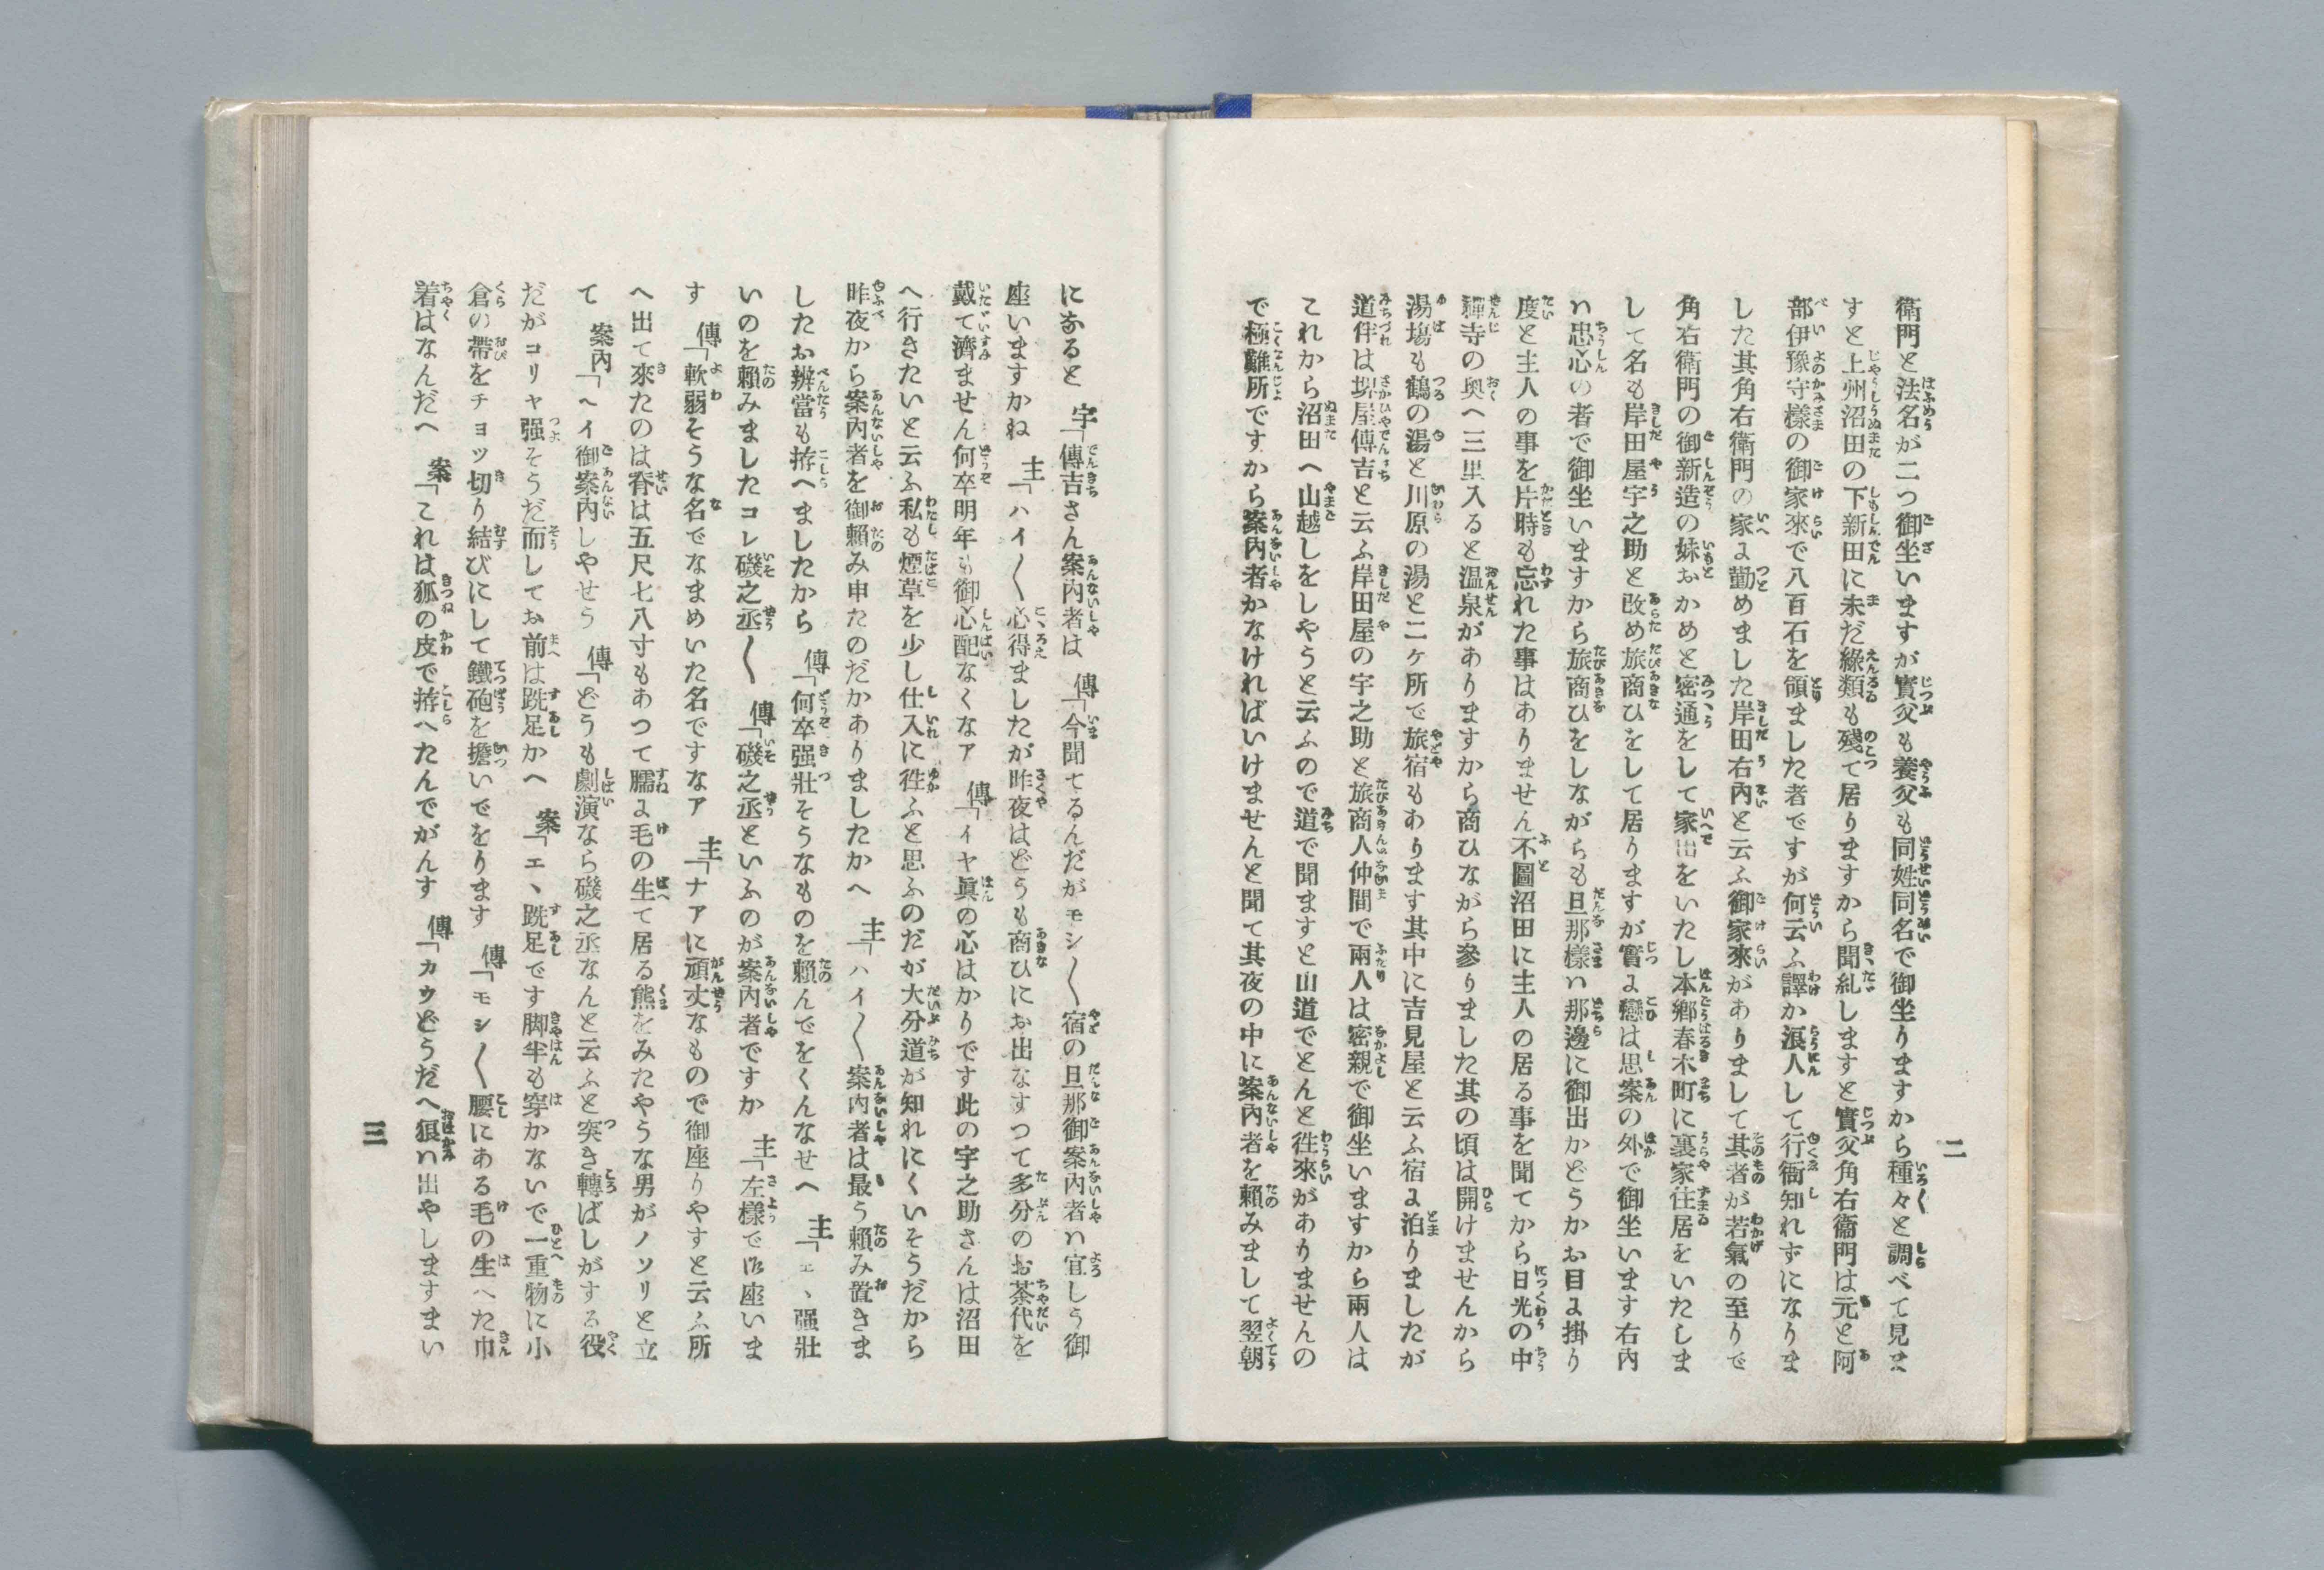 二
衞門と法名が二つ御坐いますが實父も養父も同姓同名で御坐りますから種々と調べて見ま
すと上州沼田の下新田に未だ緣類も殘て居りますから聞糺しますと實父角右衞門は元と阿
部伊豫守樣の御家來で八百石を領ました者ですが何云ふ譯か浪人して行衞知れずになりま
した其角右衞門の家に勤めました岸田右內と云ふ御家來がありまして其者が若氣の至りで
角右衞門の御新造の妹おかめと密通をして家出をいたし本鄕春木町に裏家住居をいたしま
して名も岸田屋宇之助と改め旅商ひをして居りますが實に戀は思案の外で御坐います右內
ハ忠心の者で御坐いますから旅商ひをしながらも旦那樣ハ那邊に御出かどうかお目に掛り
度と主人の事を片時も忘れた事はありません不圖沼田に主人の居る事を聞てから日光の中
禪寺の奥へ三里入ると温泉がありますから商ひながら參りました其の頃は開けませんから
湯塲も鶴の湯と川原の湯と二ヶ所で旅宿もあります其中に吉見屋と云ふ宿に泊りましたが
道伴は堺屋傳吉と云ふ岸田屋の宇之助と旅商人仲間で兩人は密親で御坐いますから兩人は
これから沼田へ山越しをしやうと云ふので道で聞ますと山道でとんと徃來がありませんの
で極難所ですから案內者かなければいけませんと聞て其夜の中に案內者を賴みまして翌朝
になると　宇「傳吉さん案內者は　傳「今聞てるんだがモシ〱宿の旦那御案內者ハ宜しう御
座いますかね　主「ハイ〱心得ましたが昨夜はどうも商ひにお出なすつて多分のお茶代を
戴て濟ません何卒明年も御心配なくなア　傳「イヤ眞の心はかりです此の宇之助さんは沼田
へ行きたいと云ふ私も煙草を少し仕入に徃ふと思ふのだが大分道が知れにくいそうだから
昨夜から案內者を御賴み申たのだかありましたかへ　主「ハイ〱案內者は最う賴み置きま
したお辨當も拵へましたから　傳「何卒强壯そうなものを賴んでをくんなせへ　主「エヽ强壯
いのを賴みましたコレ磯之丞〱　傳「磯之丞といふのが案內者ですか　主「左樣で御座いま
す　傳「軟弱そうな名でなまめいた名ですなア　主「ナアに頑丈なもので御座りやすと云ふ所
へ出て來たのは脊は五尺七八寸もあつて臑に毛の生て居る熊をみたやうな男がノソリと立
て　案內「ヘイ御案內しやせう　傳「どうも劇演なら磯之丞なんと云ふと突き轉ばしがする役
だがコリャ强そうだ而してお前は跣足かへ　案「エヽ跣足です脚半も穿かないで一重物に小
倉の帶をチョッ切り結びにして鐵砲を擔いでをります　傳「モシ〱腰にある毛の生へた巾
着はなんだへ　案「これは狐の皮で拵へたんでがんす　傳「カウどうだへ狼ハ出やしますまい
三